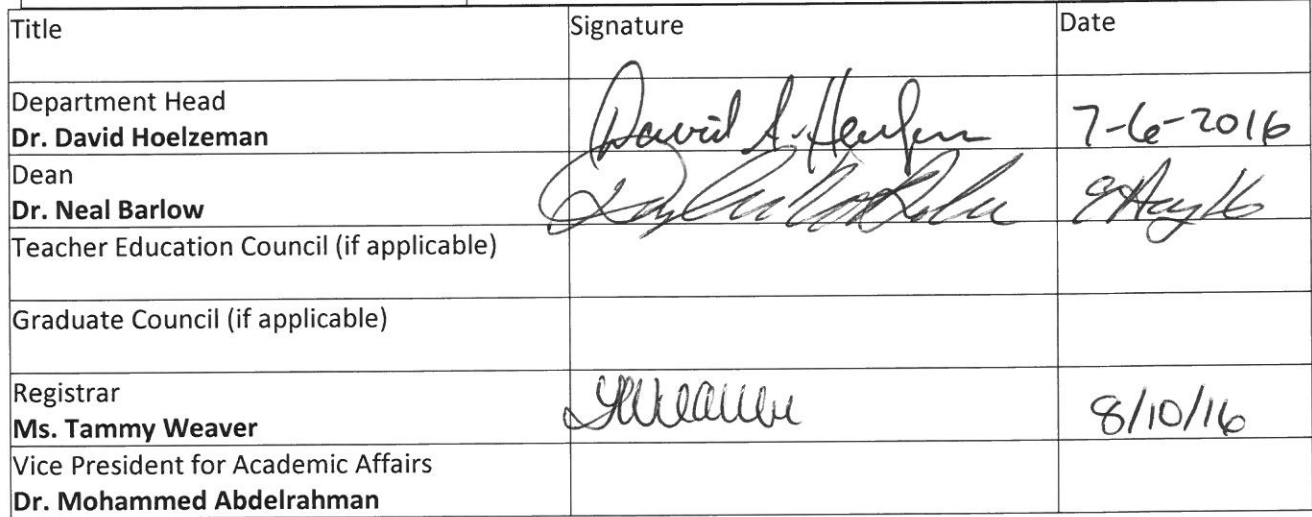 Title Signature Date
Department Head
Dr. David Hoelzeman David 7-6-2016
Dean
Dr. Neal Barlow
Teacher Education Council (if applicable)
Graduate Council (if applicable)
Registrar
Ms. Tammy Weaver 8/10/16
Vice President for Academic Affairs
Dr. Mohammed Abdelrahman